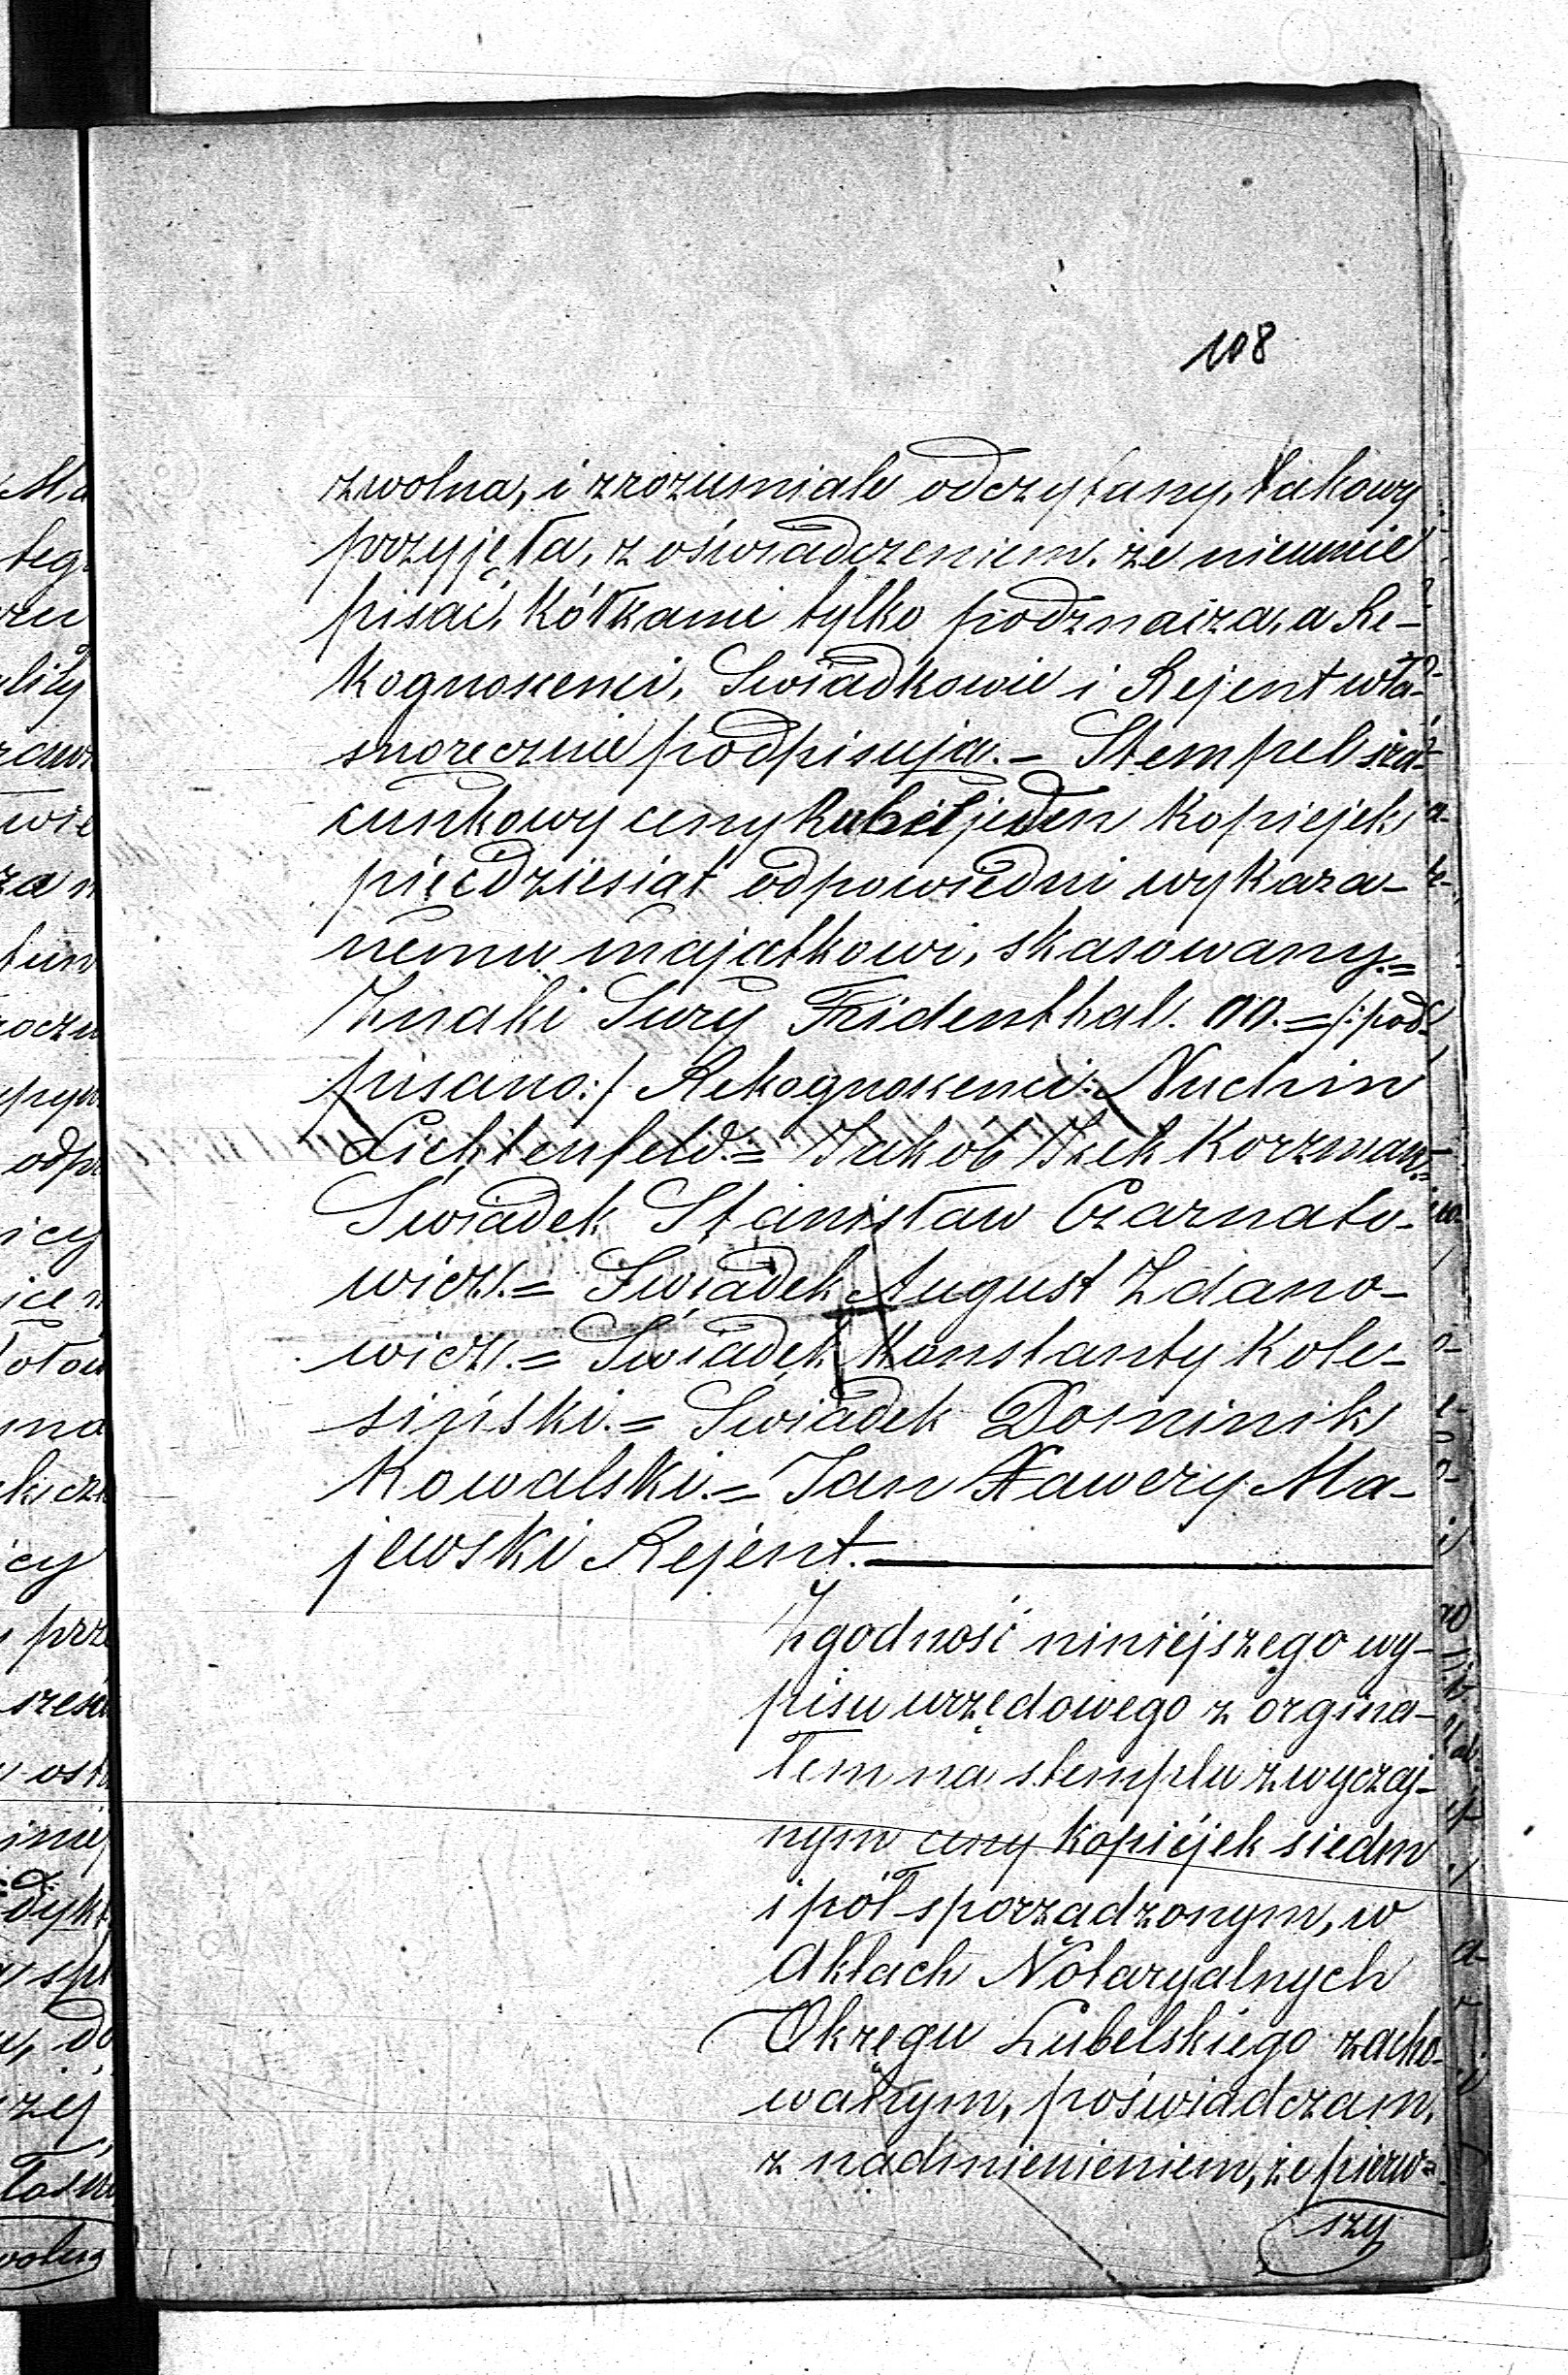 108
zwolna, i zrozumiale odczytany, takowy
przyjęła, z oświadczeniem, że nieumie
pisać, kółkami tylko podznacza, a Re-
kognoscenci, Swiadkowie i Rejent wła-
snoręcznie podpisują. - Stempel sza-
cunkowy ceny Rubel jeden Kopiejek
pięćdziesiąt odpowiedni wykaza-
nemu majątkowi, skasowany. =
Znaki Sury Fridenthal. OO. = /: pod-
pisano:/ Rekognoscenci: Nuchin
Lichtenfeld. = Jakób Icek Korzman. =
Swiadek Stanisław Czarnato-
wicz. = Swiadek August Zdano-
wicz. = Swiadek Konstanty Kole-
siński. = Swiadek Dominik
Kowalski. = Jan Xawery Ma-
jewski Rejent.
Zgodność niniejszego wy-
pisu urzędowego z orgina-
łem na stemplu zwyczaj-
nym ceny kopiejek siedm
i pół sporządzonym, w
Aktach Notaryalnych
Okręgu Lubelskiego zacho-
wanym, poświadczam,
z nadmienieniem, że pierw=
szy